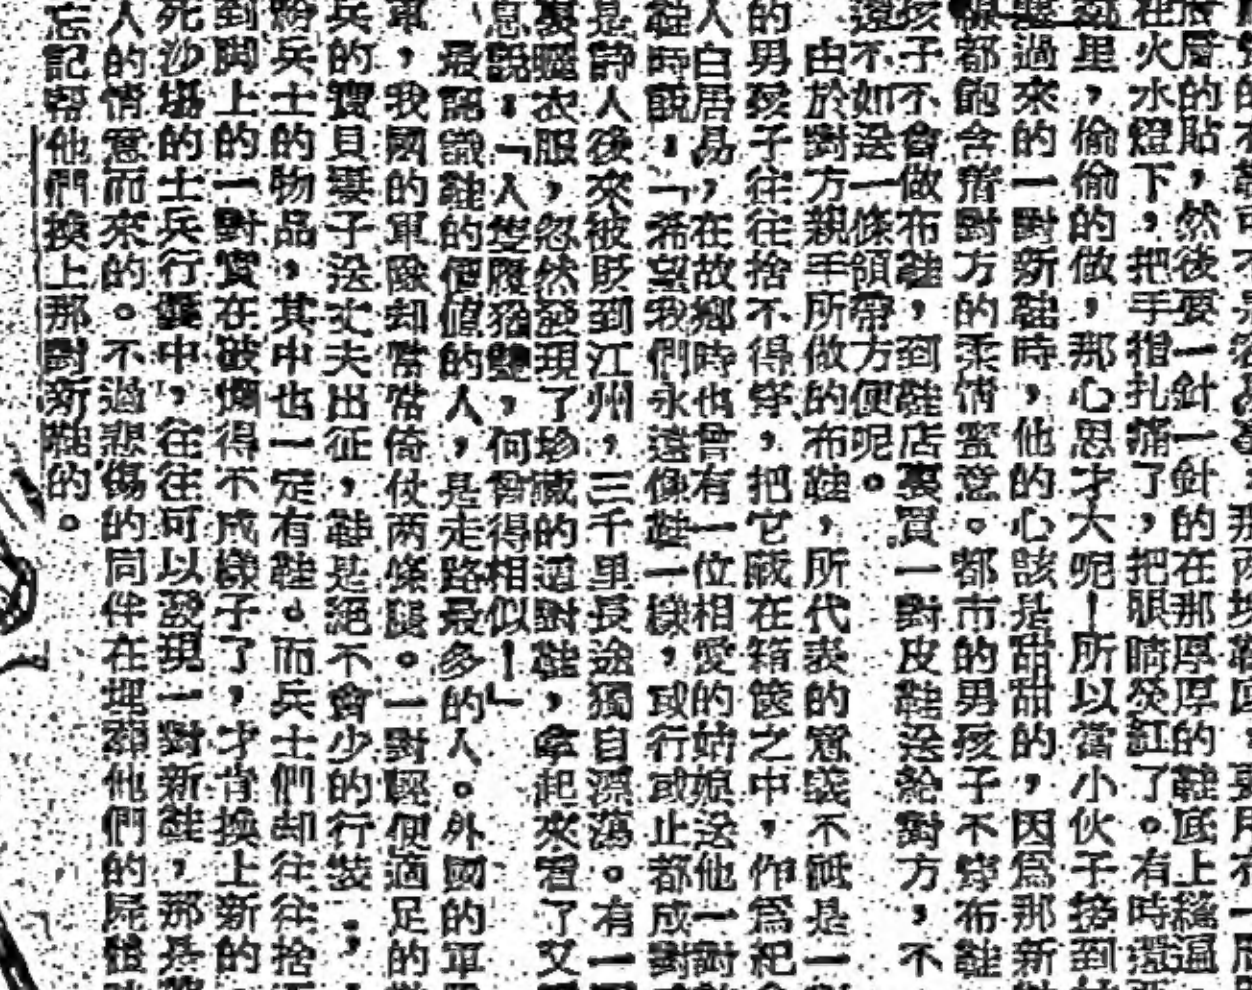 層的貼，然後要一針一針的在那厚厚的鞋底上
在火水燈下，把手指扎痛了，把眼睛熒紅了。有時還
里，偷偷的做，那心思才大呢！所以當小伙子接到
過來的一對新鞋時，他的心該是甜甜的，因爲那新
都飽含着對方的柔情蜜意。都市的男孩子不穿布鞋
孩子不會做布鞋，到鞋店裏買一對皮鞋送給對方，不
還不如送一條領帶方便呢。
由於對方親手所做的布鞋，所代表的意義不祇是一
的男孩子往往捨不得穿，把它藏在箱篋之中，作爲紀
人白居易，在故鄉時也曾有一位相愛的姑娘送他一對
鞋時說：「希望我們永遠像鞋一樣，或行或止都成對
是詩人後來被貶到江州，三千里長途獨自漂蕩。有一
裏曬衣服，忽然發現了珍藏的這對鞋，拿起來看了又
息說：「人隻履猶雙，何曾得相似！」
最認識鞋的價値的人，是走路最多的人。外國的軍
軍，我國的軍隊却常常倚仗两條腿。一對輕便適足的
兵的寶貝妻子送丈夫出征，鞋是絕不會少的行裝；
給兵士的物品，其中也一定有鞋。而兵士們却往往捨
到脚上的一對實在破爛得不成樣子了，才肯換上新的
死沙場的士兵行囊中，往往可以發現一對新鞋，那是
人的情意而來的。不過悲傷的同伴在埋葬他們的屍體
忘記幫他們換上那對新鞋的。